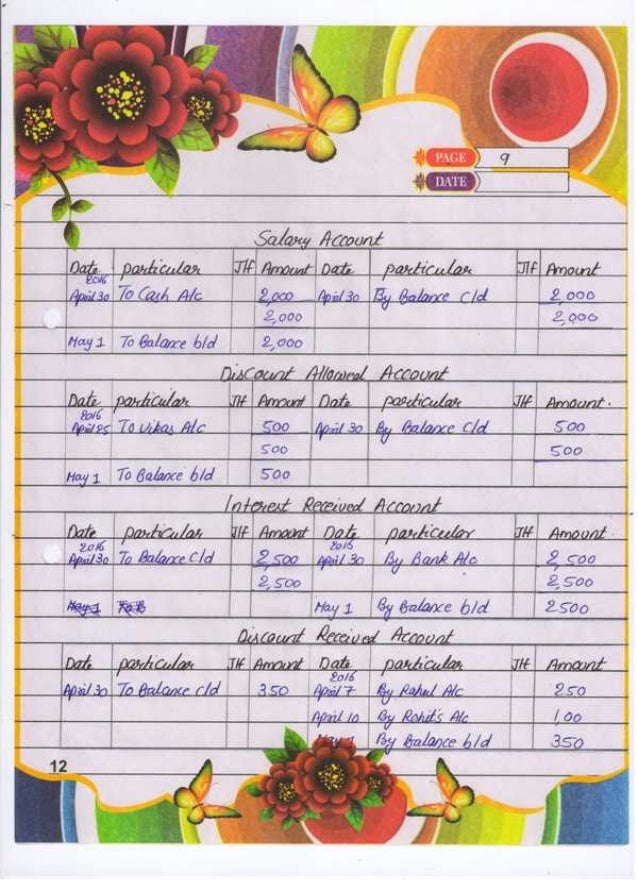 PAGE 9
DATE
Salary Account
Date particular J/f Amount Date particular J/f Amount
2016
April 30 To Cash A/c 2,000 April 30 By Balance C/d 2,000
2,000 2,000
May 1 To Balance b/d 2,000
Discount Allowed Account
Date particular J/f Amount Date particular J/f Amount.
2016
April 25 To Vikas A/c 500 April 30 By Balance C/d 500
500 500
May 1 To Balance b/d 500
Interest Received Account
Date particular J/f Amount Date particular J/f Amount.
2016 2016
April 30 To Balance C/d 2,500 April 30 By Bank A/c 2,500
2,500 2,500
May 1 To B May 1 By Balance b/d 2500
Discount Received Account
Date particular J/f Amount Date particular J/f Amount
2016
April 30 To Balance c/d 350 April 7 By Rahul A/c 250
April 10 By Rohit's A/c 1,00
May 1 By Balance b/d 350
12